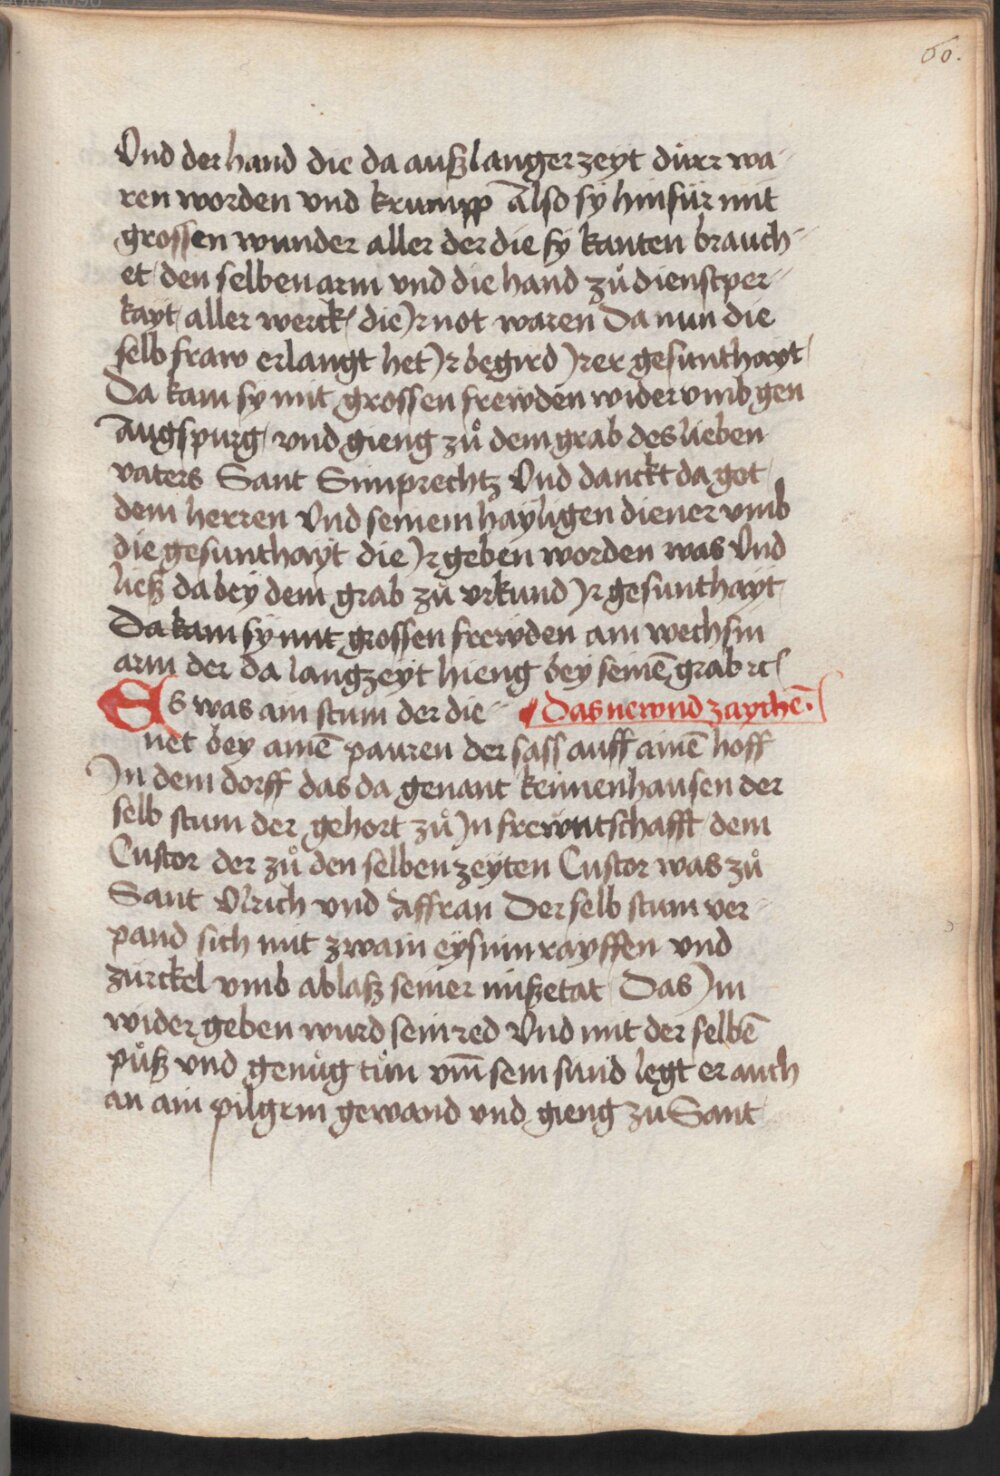 60.
Vnd der hand die da auß langer zeyt dürr wa-
ren worden vnd krumpp Also sy hinfür mit
grossen wunder aller der die sy kanten brauch-
et den selben arm vnd die hand zů dienstper-
kayt aller werck die Jr not waren Da nun die
selb fraw erlangt het Jr begird Jrer gesunthayt
Da kam sy mit grossen frewden wider vmb gen
Augspurg vnd gieng zů dem grab des lieben
vaters Sant Simprechtz Vnd danckt da got
dem herren Vnd seinem hayligen diener vmb
die gesunthayt die Jr geben worden was Vnd
ließ da bey dem grab zů vrkund Jr gesunthayt
Da kam sy mit grossen frewden ain wechsin
arm der da langzeyt hieng bey seinē grab ⁊c
Es was ain stum der die- Das newnd zaychē.
net bey ainē pauren der sass auff ainē hoff
Jn dem dorff das da genant kemenhausen der
selb stum der gehort zů Jn frewntschafft dem
Custor der zů den selben zeyten Custor was zů
Sant Vlrich vnd Affran Der selb stum ver-
pand sich mit zwain eysnin rayffen vnd
zürckel vmb ablaß seiner mißetat Das Jm
wider geben wurd sein red Vnd mit der selbē
půß vnd genůg tůn vm̄ sein sünd legt er auch
an ain pilgrin gewand vnd gieng zu Sant